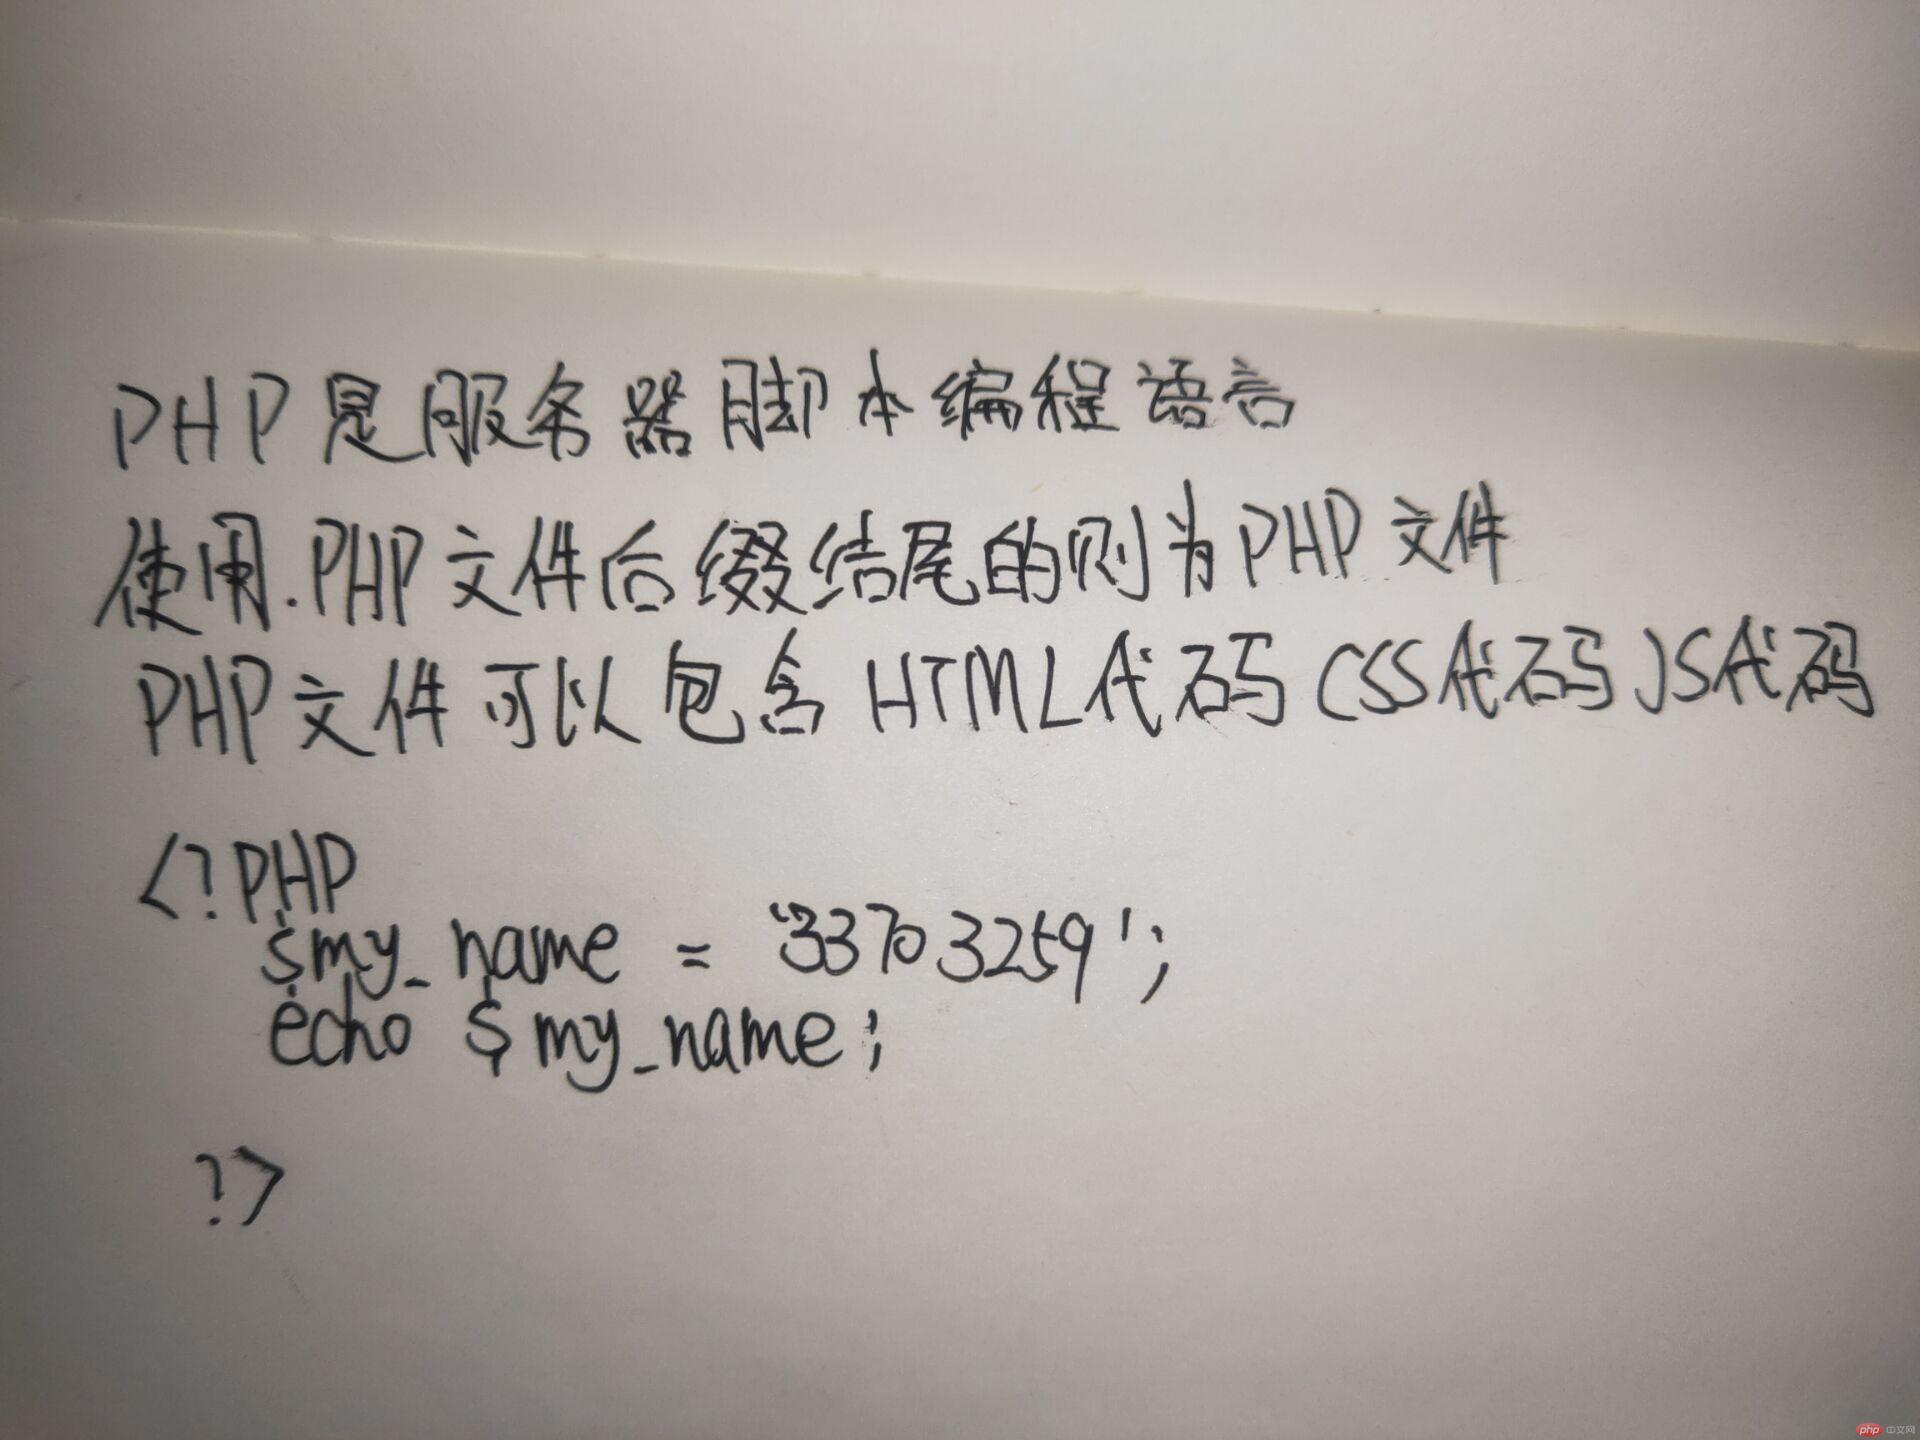 PHP是服务器脚本编程语言
使用.PHP文件后缀结尾的则为PHP文件
PHP文件可以包含HTML代码CSS代码JS代码
<?PHP
$my_name = '33703259';
echo $my_name;
?>
php 中文网